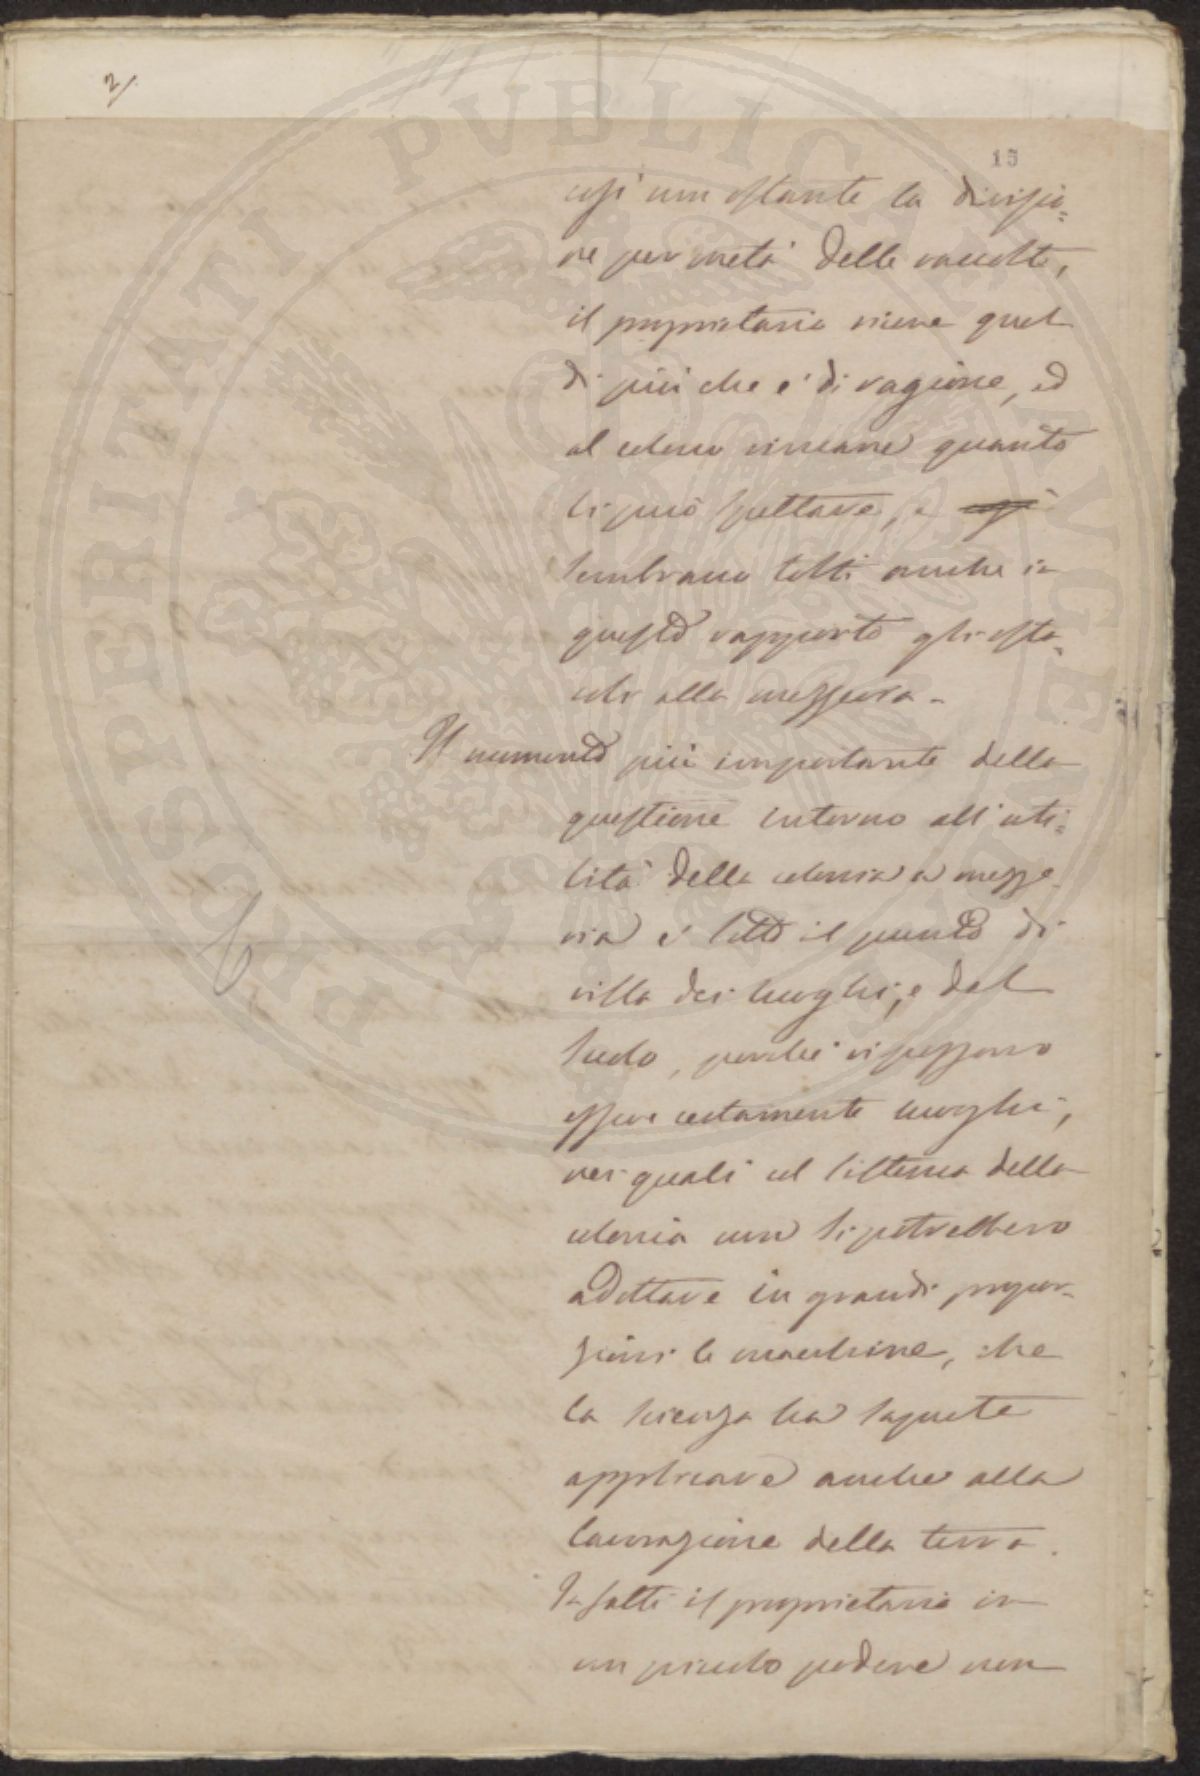 2/.
15
così non ostante la divisio=
ne per metà delle raccolte,
il proprietario riceve quel
di più che è di ragione, ed
al colono rimane quanto
li può spettare, e così
sembrano tolti anche in
questo rapporto gli osta=
coli alla mezzeria.
Il momento più importante della
questione intorno all'uti=
lità della colonia a mezze
ria è sotto il punto di
vista dei luoghi, e del
suolo, perchè vi possono
essere certamente luoghi,
nei quali col sistema della
colonia non si potrebbero
adottare in grandi propor=
zioni le macchine, che
la scienza ha saputo
applicare anche alla
lavorazione della terra.
Infatti il proprietario in
un piccolo podere non
PROSPERITATI PVBLICAE AVGENDAE